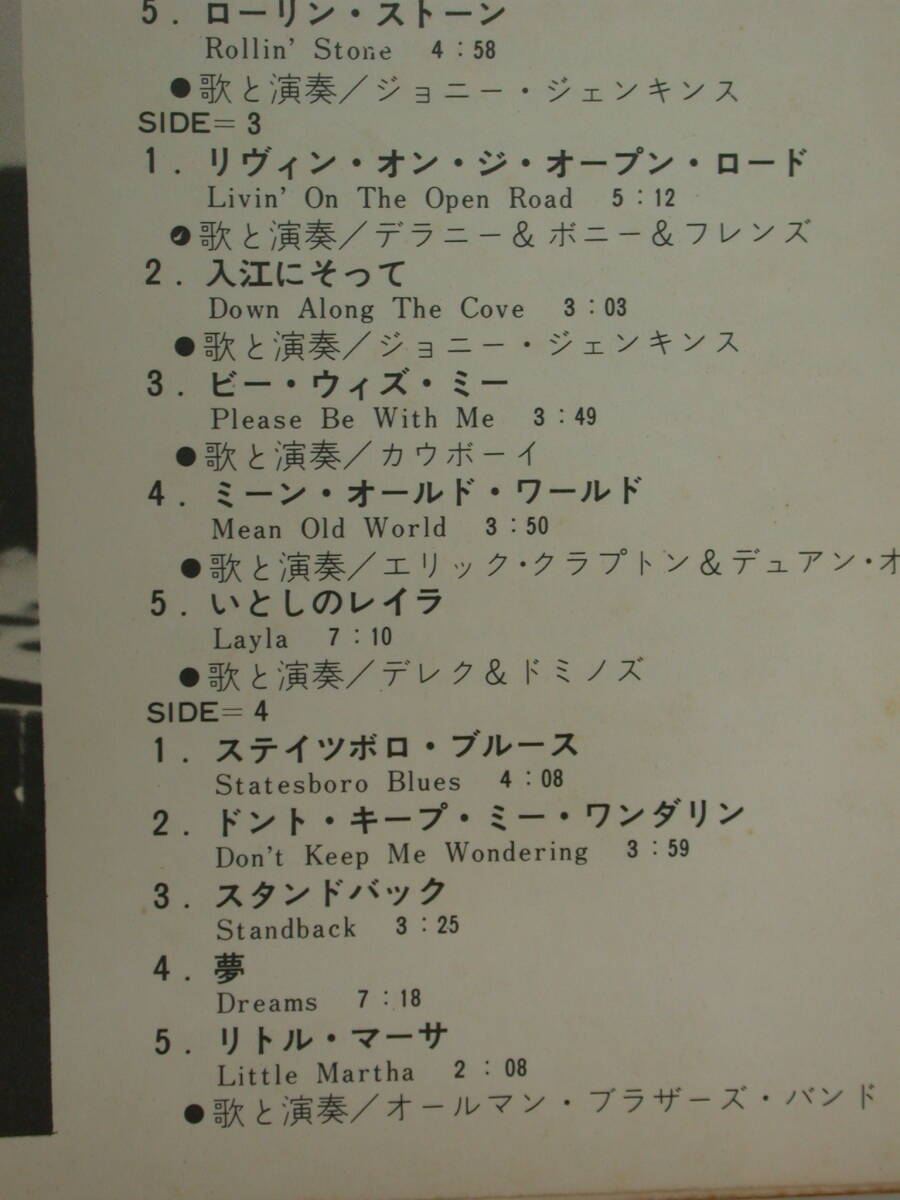 5. ローリン・ストーン
Rollin' Stone 4:58
●歌と演奏/ジョニー・ジェンキンス
SIDE=3
1. リヴィン・オン・ジ・オープン・ロード
Livin' On The Open Road 5:12
●歌と演奏/デラニー&ボニー&フレンズ
2. 入江にそって
Down Along The Cove 3:03
●歌と演奏/ジョニー・ジェンキンス
3. ビー・ウィズ・ミー
Please Be With Me 3:49
●歌と演奏/カウボーイ
4. ミーン・オールド・ワールド
Mean Old World 3:50
●歌と演奏/エリック・クラプトン&デュアン・オ
5. いとしのレイラ
Layla 7:10
●歌と演奏/デレク&ドミノズ
SIDE=4
1. ステイツボロ・ブルース
Statesboro Blues 4:08
2. ドント・キープ・ミー・ワンダリン
Don't Keep Me Wondering 3:59
3. スタンドバック
Standback 3:25
4. 夢
Dreams 7:18
5. リトル・マーサ
Little Martha 2:08
●歌と演奏/オールマン・ブラザーズ・バンド